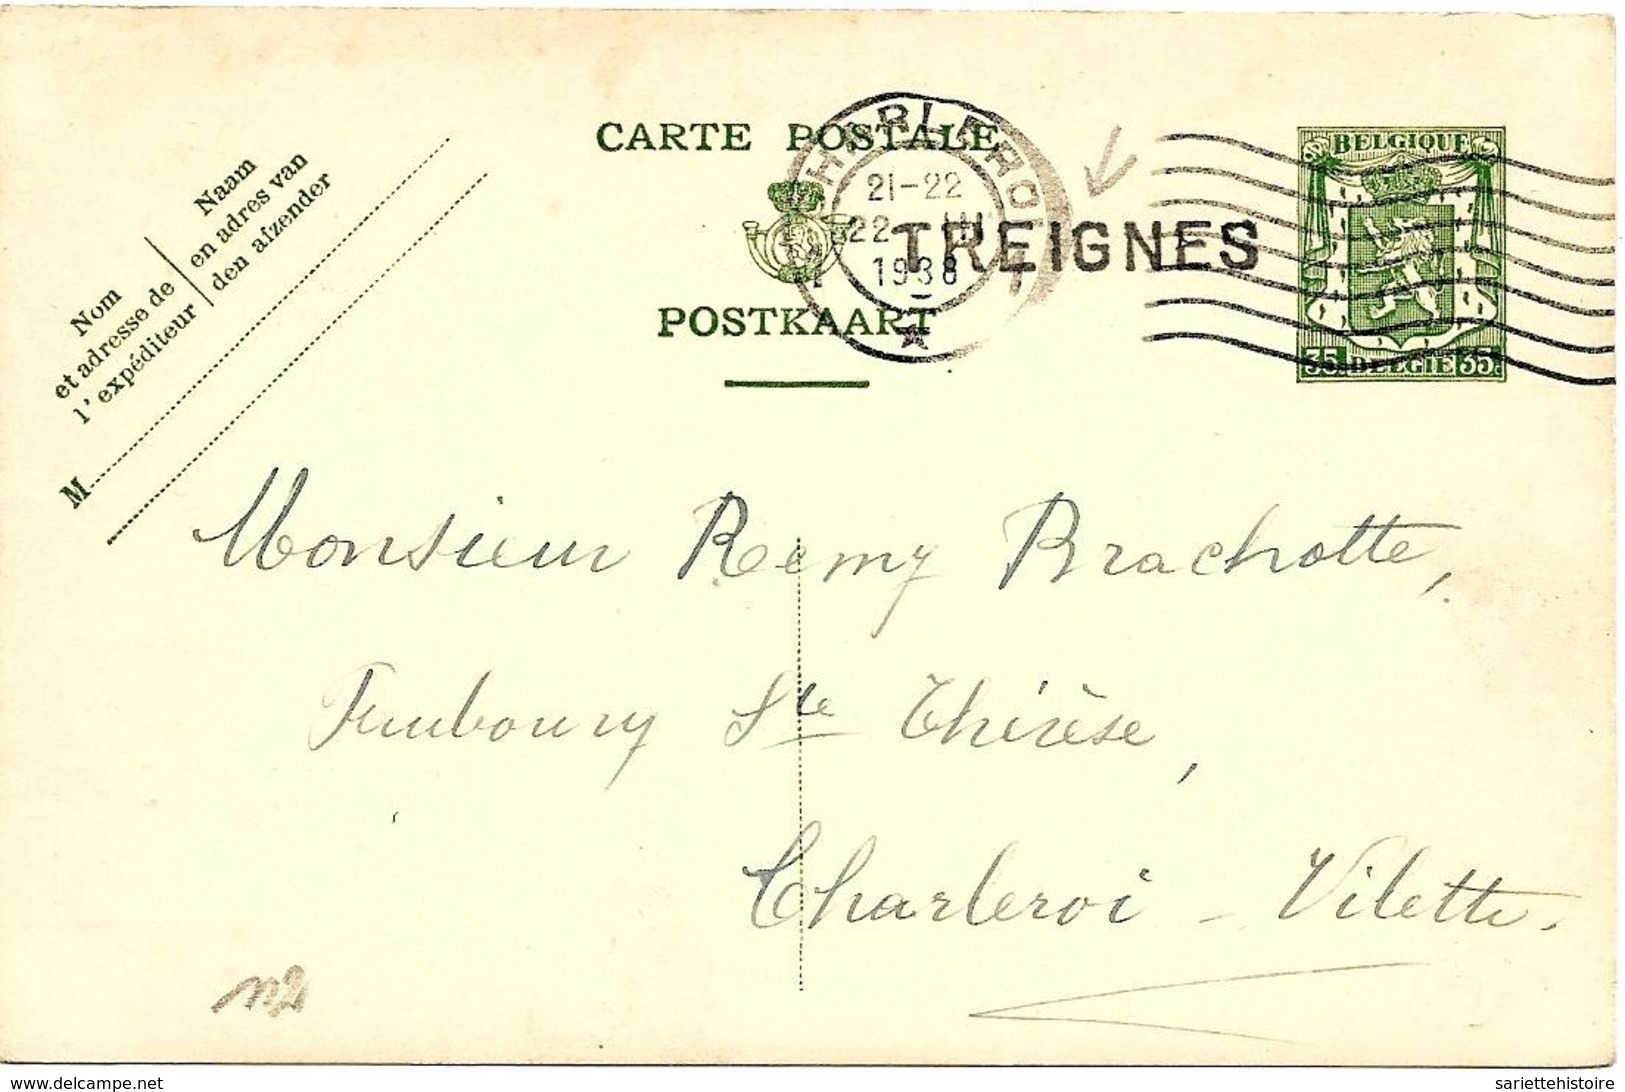 CARTE POSTALE
POSTKAART
CHARLEROI
21-22
22 III
1938
TREIGNES
BELGIQUE
35 BELGIE 35
Nom
et adresse de
l'expéditeur
Naam
en adres van
den afzender
M
Monsieur Remy Brachotte,
Faubourg Ste Thérèse,
Charleroi - Vilette.
www.delcampe.net
sariettehistoire